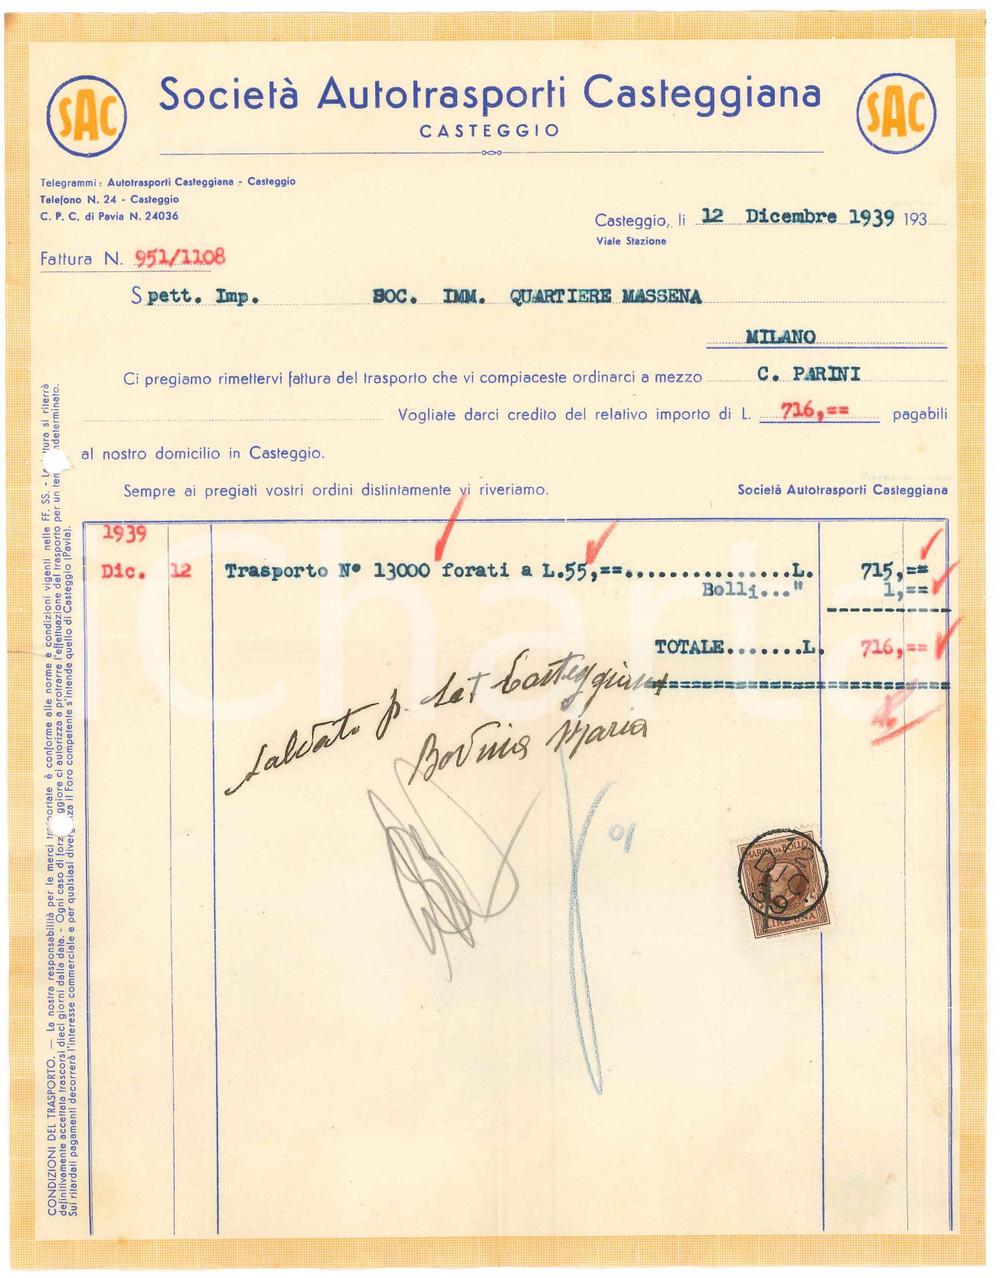 SAC
Società Autotrasporti Casteggiana
CASTEGGIO
SAC
Telegrammi: Autotrasporti Casteggiana - Casteggio
Telefono N. 24 - Casteggio
C. P. C. di Pavia N. 24036
Casteggio, li 12 Dicembre 1939 193
Viale Stazione
Fattura N. 951/1108
Spett. Imp. SOC. IMM. QUARTIERE MASSENA
MILANO
Ci pregiamo rimettervi fattura del trasporto che vi compiaceste ordinarci a mezzo C. PARINI
Vogliate darci credito del relativo importo di L. 716,== pagabili
al nostro domicilio in Casteggio.
Sempre ai pregiati vostri ordini distintamente vi riveriamo.
Società Autotrasporti Casteggiana
1939
Dic. 12 Trasporto N° 13000 forati a L.55,==...............L. 715,==
Bolli..." 1,==
TOTALE.......L. 716,==
saldato p. Sat Casteggiana
Bovina Maria
10
MARCA DA BOLLO
LIRE UNA
CONDIZIONI DEL TRASPORTO. — La nostra responsabilità per le merci è conforme alle norme e condizioni vigenti nelle FF. SS. - si riterrà
definitivamente accettata trascorsi dieci giorni dalla data. - Ogni caso di ci autorizza a protrarre l'effettuazione del trasporto per un
Sui ritardati pagamenti decorrerà l'interesse commerciale e per qualsiasi il Foro competente s'intende quello di Casteggio (Pavia).
Charta